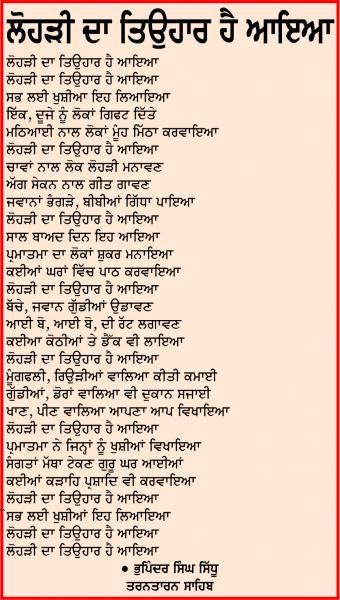 ਲੋਹੜੀ ਦਾ ਤਿਉਹਾਰ ਹੈ ਆਇਆ
ਲੋਹੜੀ ਦਾ ਤਿਉਹਾਰ ਹੈ ਆਇਆ
ਲੋਹੜੀ ਦਾ ਤਿਉਹਾਰ ਹੈ ਆਇਆ
ਸਭ ਲਈ ਖੁਸ਼ੀਆ ਇਹ ਲਿਆਇਆ
ਇੱਕ, ਦੂਜੇ ਨੂੰ ਲੋਕਾਂ ਗਿਫਟ ਦਿੱਤੇ
ਮਠਿਆਈ ਨਾਲ ਲੋਕਾਂ ਮੂੰਹ ਮਿੱਠਾ ਕਰਵਾਇਆ
ਲੋਹੜੀ ਦਾ ਤਿਉਹਾਰ ਹੈ ਆਇਆ
ਚਾਵਾਂ ਨਾਲ ਲੋਕ ਲੋਹੜੀ ਮਨਾਵਣ
ਅੱਗ ਸੇਕਨ ਨਾਲ ਗੀਤ ਗਾਵਣ
ਜਵਾਨਾਂ ਭੰਗੜੇ, ਬੀਬੀਆਂ ਗਿੱਧਾ ਪਾਇਆ
ਲੋਹੜੀ ਦਾ ਤਿਉਹਾਰ ਹੈ ਆਇਆ
ਸਾਲ ਬਾਅਦ ਦਿਨ ਇਹ ਆਇਆ
ਪ੍ਰਮਾਤਮਾ ਦਾ ਲੋਕਾਂ ਸ਼ੁਕਰ ਮਨਾਇਆ
ਕਈਆਂ ਘਰਾਂ ਵਿੱਚ ਪਾਠ ਕਰਵਾਇਆ
ਲੋਹੜੀ ਦਾ ਤਿਉਹਾਰ ਹੈ ਆਇਆ
ਬੱਚੇ, ਜਵਾਨ ਗੁੱਡੀਆਂ ਉਡਾਵਣ
ਆਈ ਬੋ, ਆਈ ਬੋ, ਦੀ ਰੱਟ ਲਗਾਵਣ
ਕਈਆ ਕੋਠੀਆਂ ਤੇ ਡੈੱਕ ਵੀ ਲਾਇਆ
ਲੋਹੜੀ ਦਾ ਤਿਉਹਾਰ ਹੈ ਆਇਆ
ਮੂੰਗਫਲੀ, ਰਿਉੜੀਆਂ ਵਾਲਿਆ ਕੀਤੀ ਕਮਾਈ
ਗੁੱਡੀਆਂ, ਡੋਰਾਂ ਵਾਲਿਆ ਵੀ ਦੁਕਾਨ ਸਜਾਈ
ਖਾਣ, ਪੀਣ ਵਾਲਿਆ ਆਪਣਾ ਆਪ ਵਿਖਾਇਆ
ਲੋਹੜੀ ਦਾ ਤਿਉਹਾਰ ਹੈ ਆਇਆ
ਪ੍ਰਮਾਤਮਾ ਨੇ ਜਿਨ੍ਹਾਂ ਨੂੰ ਖੁਸ਼ੀਆਂ ਵਿਖਾਇਆ
ਸੰਗਤਾਂ ਮੱਥਾ ਟੇਕਣ ਗੁਰੂ ਘਰ ਆਈਆਂ
ਕਈਆਂ ਕੜਾਹਿ ਪ੍ਰਸ਼ਾਦਿ ਵੀ ਕਰਵਾਇਆ
ਲੋਹੜੀ ਦਾ ਤਿਉਹਾਰ ਹੈ ਆਇਆ
ਸਭ ਲਈ ਖੁਸ਼ੀਆਂ ਇਹ ਲਿਆਇਆ
ਲੋਹੜੀ ਦਾ ਤਿਉਹਾਰ ਹੈ ਆਇਆ
ਲੋਹੜੀ ਦਾ ਤਿਉਹਾਰ ਹੈ ਆਇਆ
• ਭੁਪਿੰਦਰ ਸਿੰਘ ਸਿੱਧੂ
ਤਰਨਤਾਰਨ ਸਾਹਿਬ